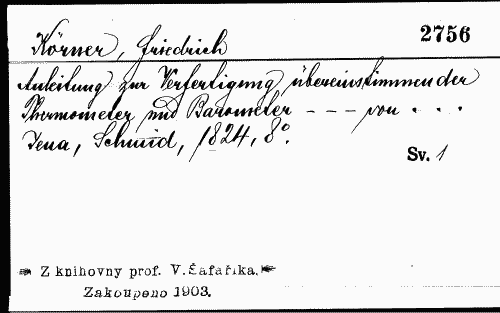 2756
Körner, Friedrich
Anleitung zur Verfertigung übereinstimmender
Thermometer und Barometer --- von ...
Jena, Schmid, 1824, 8°.
Sv. 1
Z knihovny prof. V. Šafaříka.
Zakoupeno 1903.